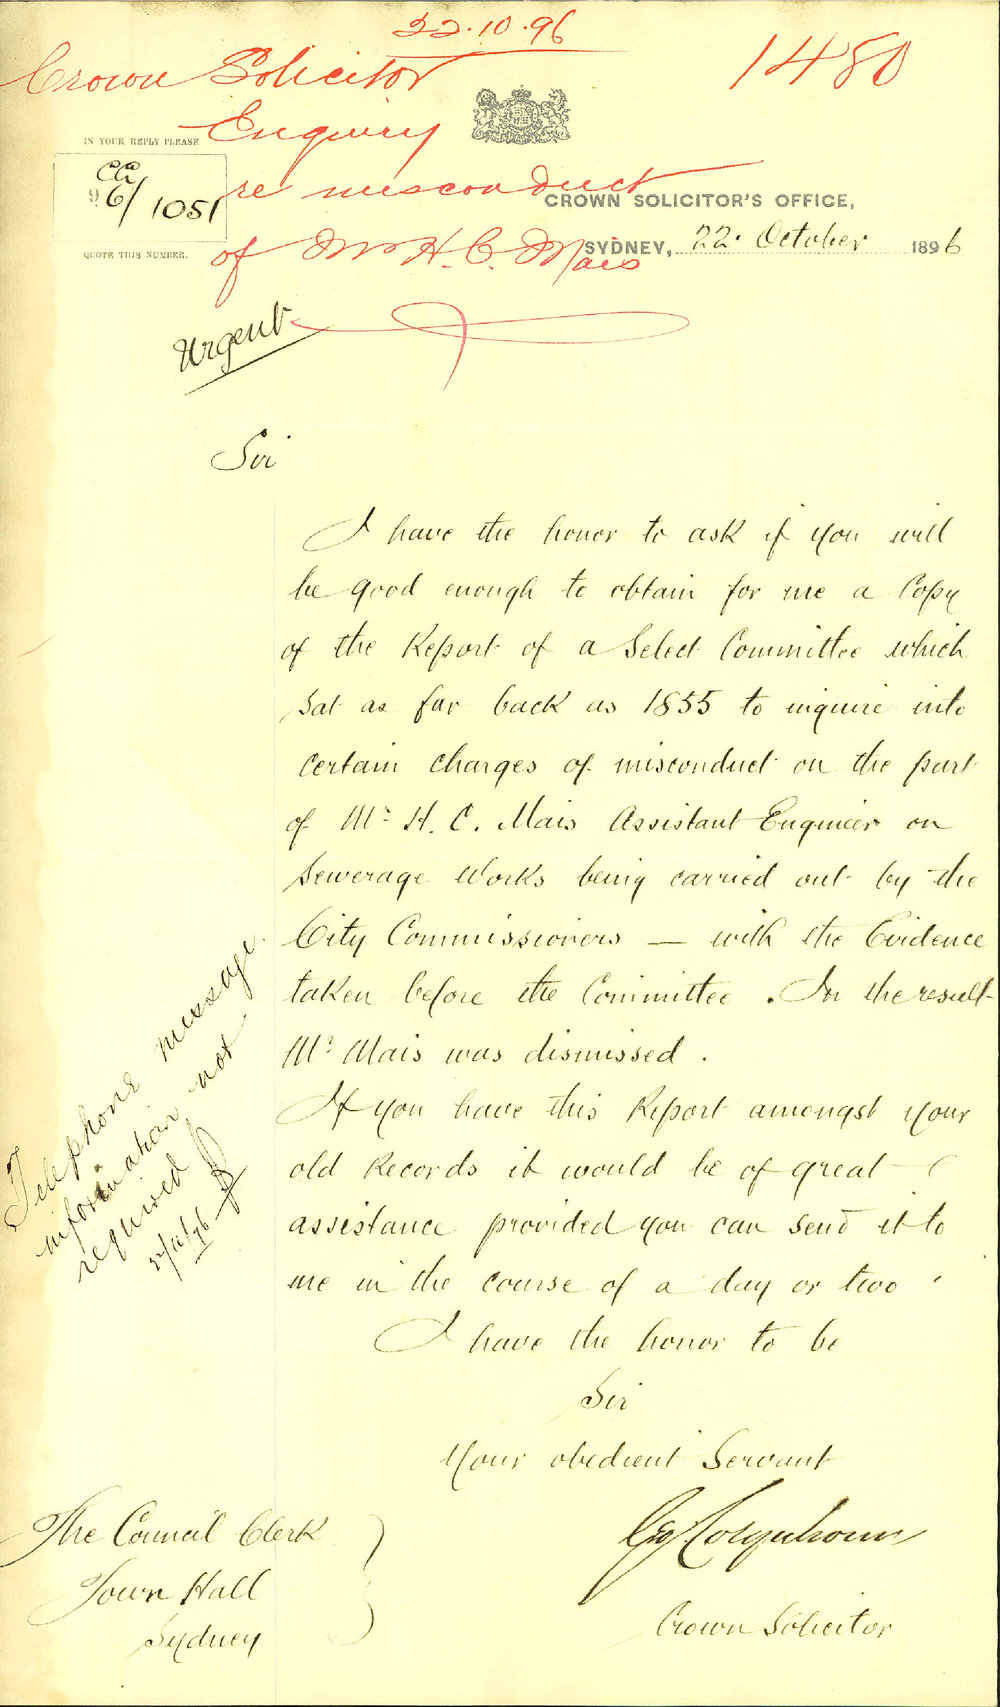 22.10.96
Crown Solicitor
1480
Enquiry
re misconduct
of Mr H. C. Mais
IN YOUR REPLY PLEASE
96/1051
QUOTE THIS NUMBER.
CROWN SOLICITOR'S OFFICE,
SYDNEY, 22. October 1896
Urgent
Sir
I have the honor to ask if you will
be good enough to obtain for me a Copy
of the Report of a Select Committee which
sat as far back as 1855 to inquire into
certain charges of misconduct on the part
of Mr. H. C. Mais Assistant Engineer on
Sewerage Works being carried out by the
City Commissioners — with the Evidence
taken before the Committee. In the result
Mr. Mais was dismissed.
If you have this Report amongst your
old Records it would be of great
assistance provided you can send it to
me in the course of a day or two
I have the honor to be
Sir
Your obedient Servant
Geo Colquhoun
Crown Solicitor
The Council Clerk
Town Hall
Sydney
Telephone message
information not
required